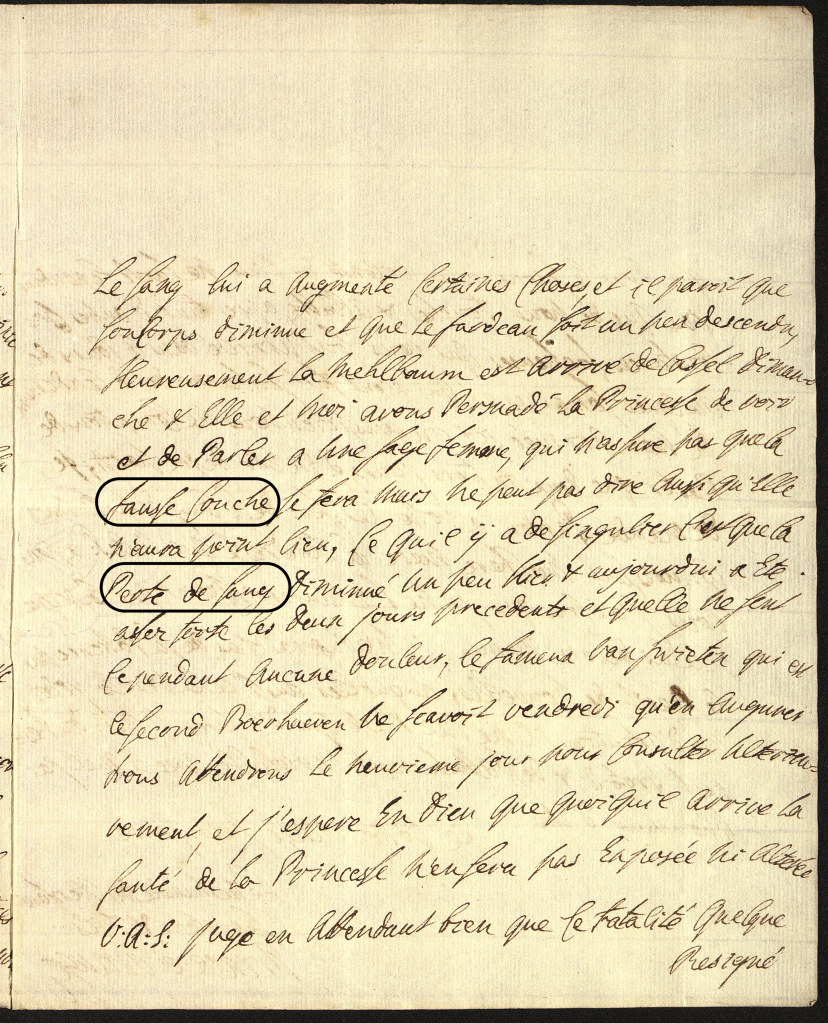 Le sang lui a augmenté Certaines Choses et il paroit que
son Corps diminue et que le fardeau soit un peu descendu,
Heureusement La Mehlbaum est arrivé de Cassel diman-
che & Elle et moi avons Persuadé La Princesse de voir
et de Parler a Une sage femme, qui n'assure pas que la
fausse Couche se fera mais ne peut pas dire aussi qu'Elle
n'aura point lieu, Ce quil ÿ a de singulier C'est que la
Perte de sang Diminué Un peu hier & aujourdui a Eté
asses forte les deux jours precedents et quelle ne sent
Cependant aucune douleur, le fameux van swieten qui est
le second Boerhaeven ne scavoit vendredi qu'en Augurer
nous Attendrons Le neuvieme jour pour Consulter Ulterieu=
rement, et j'espere En Dieu que quoiquil arrive La
santé de La Princesse n'en sera pas Exposée ni alterée
V: A: S: juge en Attendant bien que Ce fatalité Quelque
Resigné